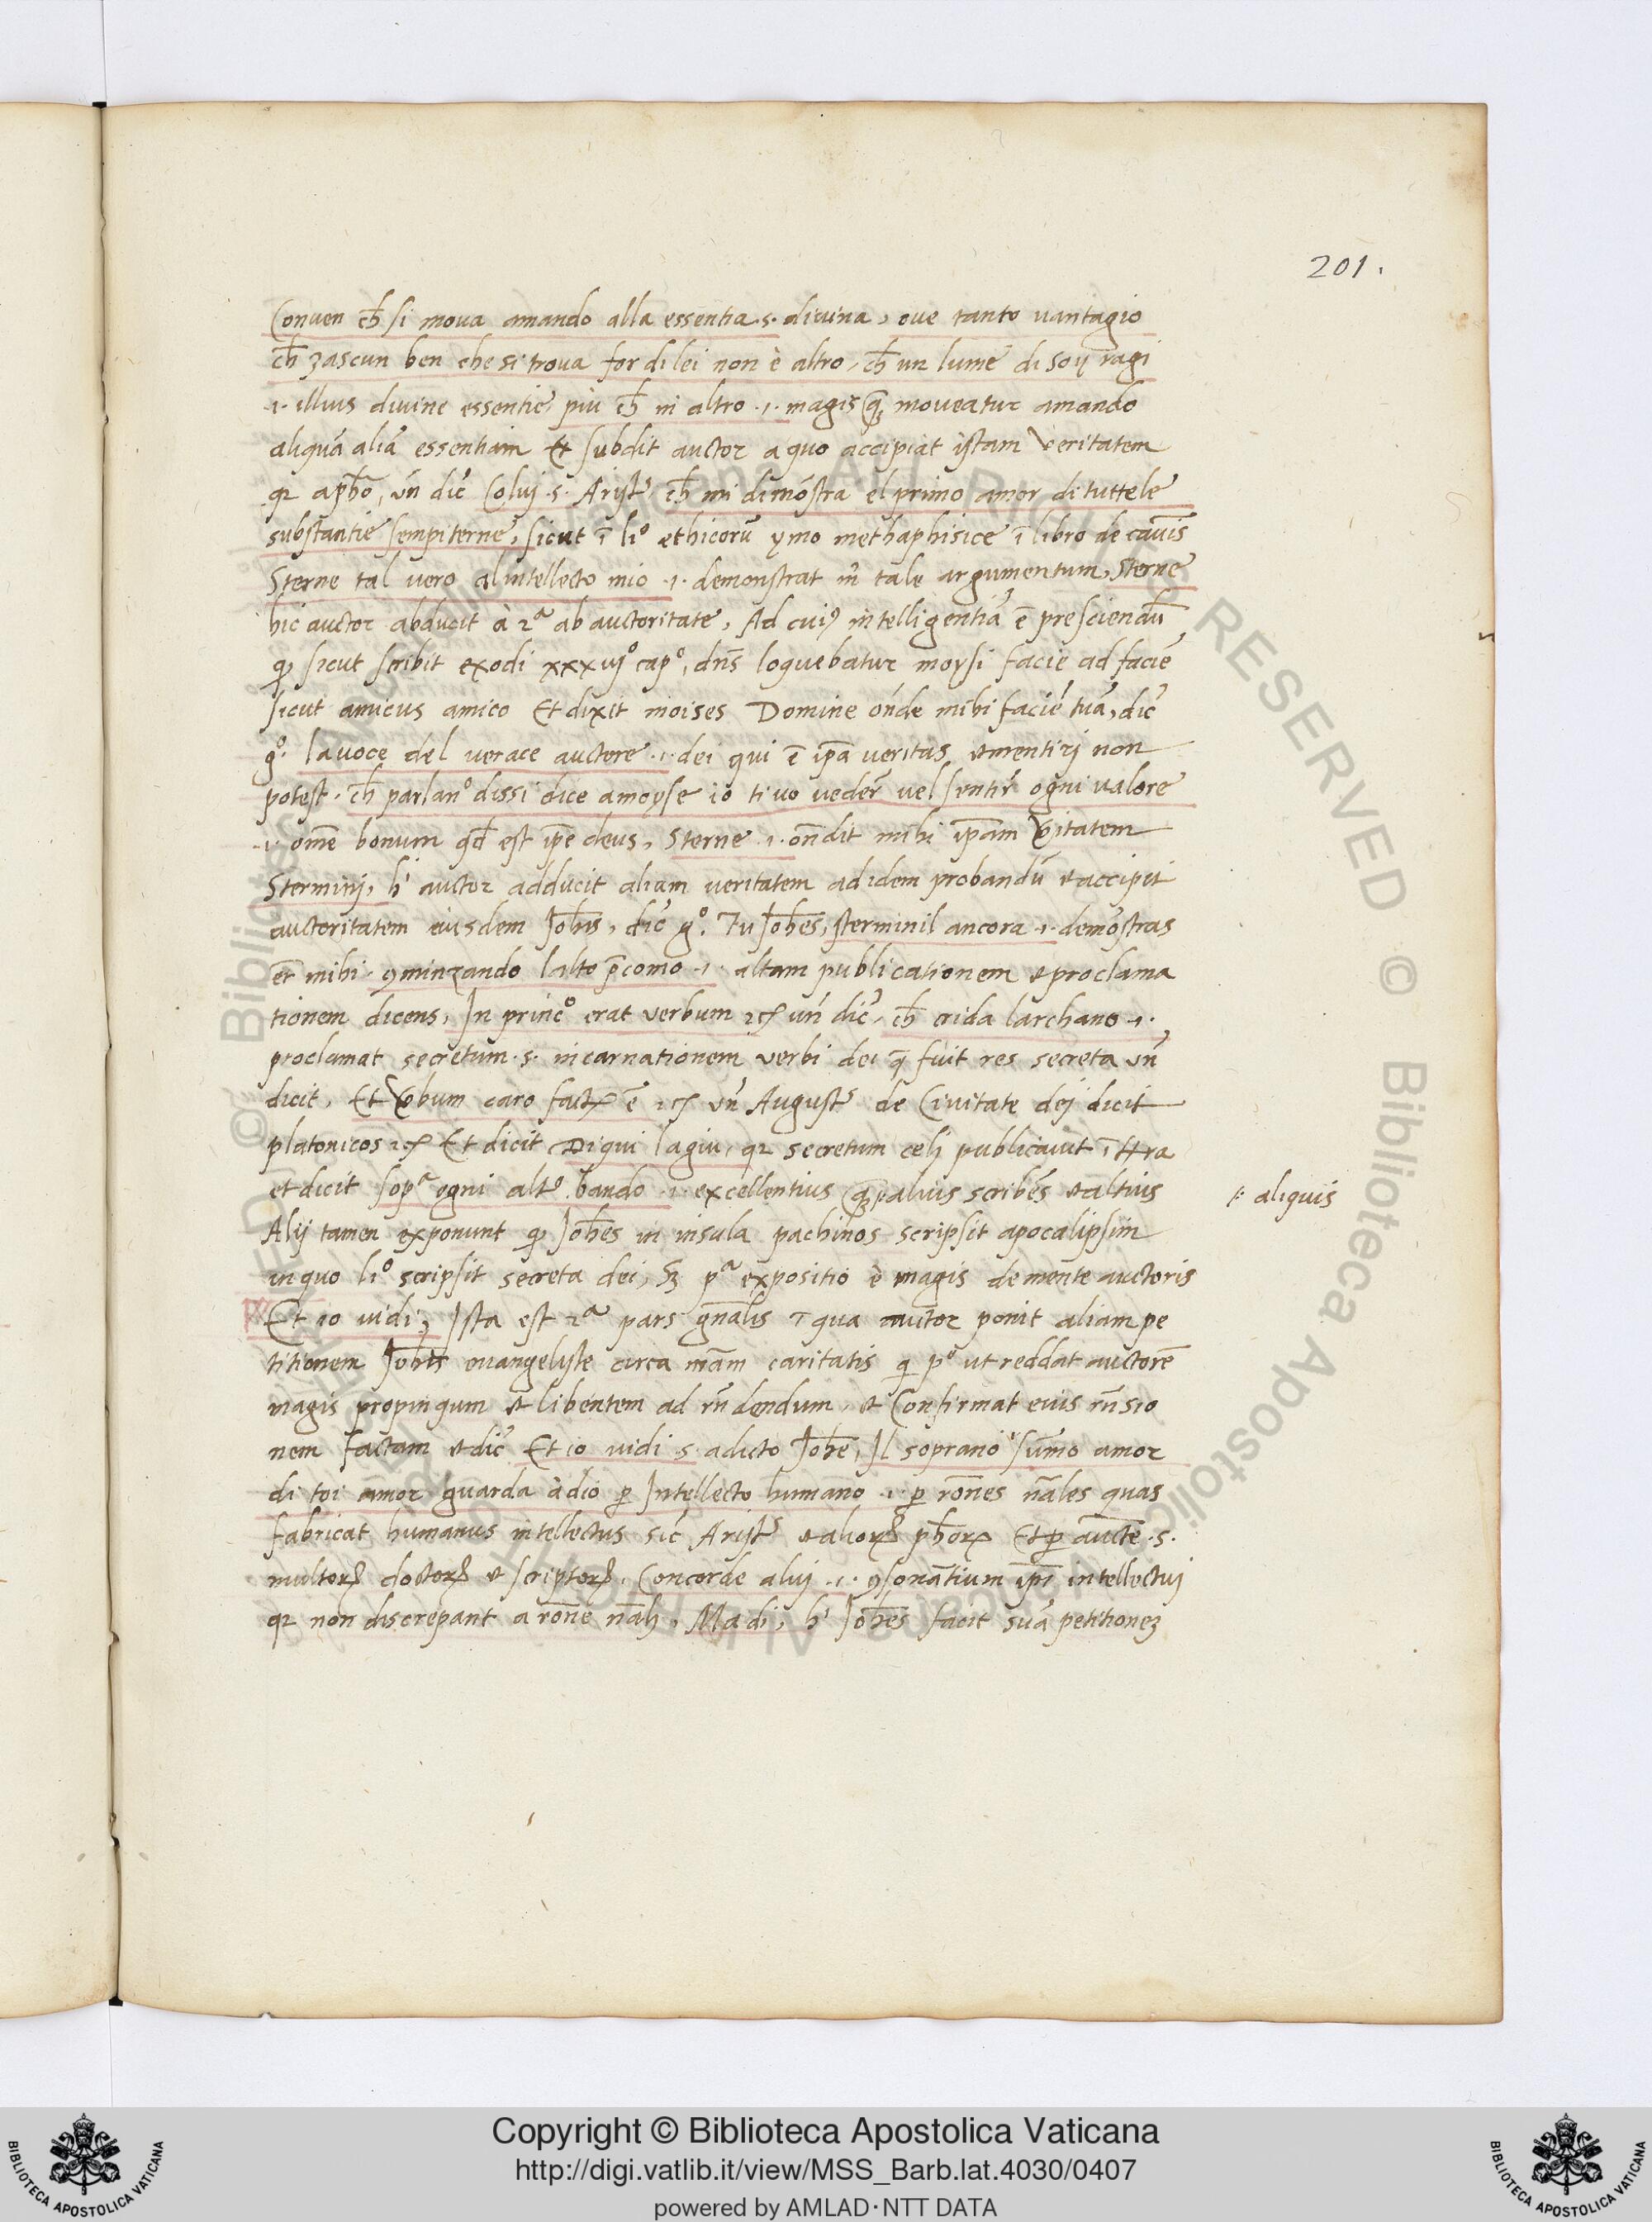 201.
Conven ch̄ si mova amando alla essentia .s. divina, ove tanto vantagio
ch̄ zascun ben che si trova for di lei non è altro, ch̄ un lume di soy ragi
.i. illius divine essentie, piu ch̄ in altro .i. magis qꝫ moveatur amando
aliquā aliā essentiam Et subdit auctor a quo accipiat istam veritatem
qꝛ a pħo, vn̄ dic̄ Coluj .s. Aristꝰ, ch̄ mi dimōstra el primo amor di tuttele
substantie sempiterne, sicut ī liº ethicorū ymo methaphisice ī libro de causis
Sterne tal vero al intellecto mio .i. demonstrat m̄ tale argumentum, Sterne
hic auctor abducit à 2ª ab auctoritate, Ad cuiꝰ intelligentiā ē presciendū
ꝙ sicut scribit exodi xxxiijº capº, dn̄s loquebatur moysi facie ad faciē
sicut amicus amico Et dixit moises Domine ōnde mihi faciē tuā, dic̄
gº. la voce del verace auctore .i. dei qui ē ip̄a veritas et mentirj non
potest. ch̄ parlanº di ssi dice a moyse io ti vo veder̄ vel sentir̄ ogni valore
.i. om̄e bonum qd̄ est ip̄e deus, Sterne .i. on̄dit mihi ip̄am v̄itatem
Sterminj, hⁱ auctor adducit aliam veritatem ad idem probandū et accipit
auctoritatem eiusdem Joħis, dic̄ gº. Tu Joħes, sterminil ancora .i. demōstras
et̄ mihi. ꝯminzando lalto p̄como .i. altam publicationem et proclama
tionem dicens, In princº erat verbum ⁊cꝭ vn̄ dic̄, ch̄ crida larchano .i.
proclamat secretum .s. incarnationem verbi dei q̄ fuit res secreta vn̄
dicit, Et v̄bum caro factꝫ ē ⁊cꝭ vn̄ Augustꝰ de Civitate dej dicit
platonicos ⁊cꝭ Et dicit Di qui la giu, qꝛ secretum celj publicavit ī t̄ra
et dicit sopª ogni altº bando .i. excellentius qꝫ alius scribēs et altius
⁒ aliquis
Alij tamen exponunt ꝙ Joħes in insula pachinos scripsit apocalipsim
in quo liº scripsit secreta dei, Sꝫ pª expositio è magis de mente auctoris
Et io vidi, Ista est 2ª pars gn̄alis ī qua auctor ponit aliam pe
titionem Joħis evangelyste circa mām caritatis q pº ut reddat auctorē
magis propinqum et libentem ad rn̄dendum, et Confirmat eius rn̄sio
nem factam et dic̄ Et io vidi .s. a dicto Joħe, Il soprano sūmo amor
di toi amor guarda à dio ꝑ Intellecto humano .i. ꝑ rōnes nāles quas
fabricat humanus intellectus sic̄ Aristꝰ et aliorꝝ pħorꝝ Et ꝑ aucte .s.
multorꝝ doctorꝝ et scriptorꝝ. Concorde a luj .i. ꝯsonātium ip̄i intellectuj
qꝛ non discrepant a rōne nālj, Ma di, hⁱ Joħes facit suā petitionez
Copyright © Biblioteca Apostolica Vaticana
http://digi.vatlib.it/view/MSS_Barb.lat.4030/0407
powered by AMLAD·NTT DATA
BIBLIOTECA APOSTOLICA VATICANA
BIBLIOTECA APOSTOLICA VATICANA